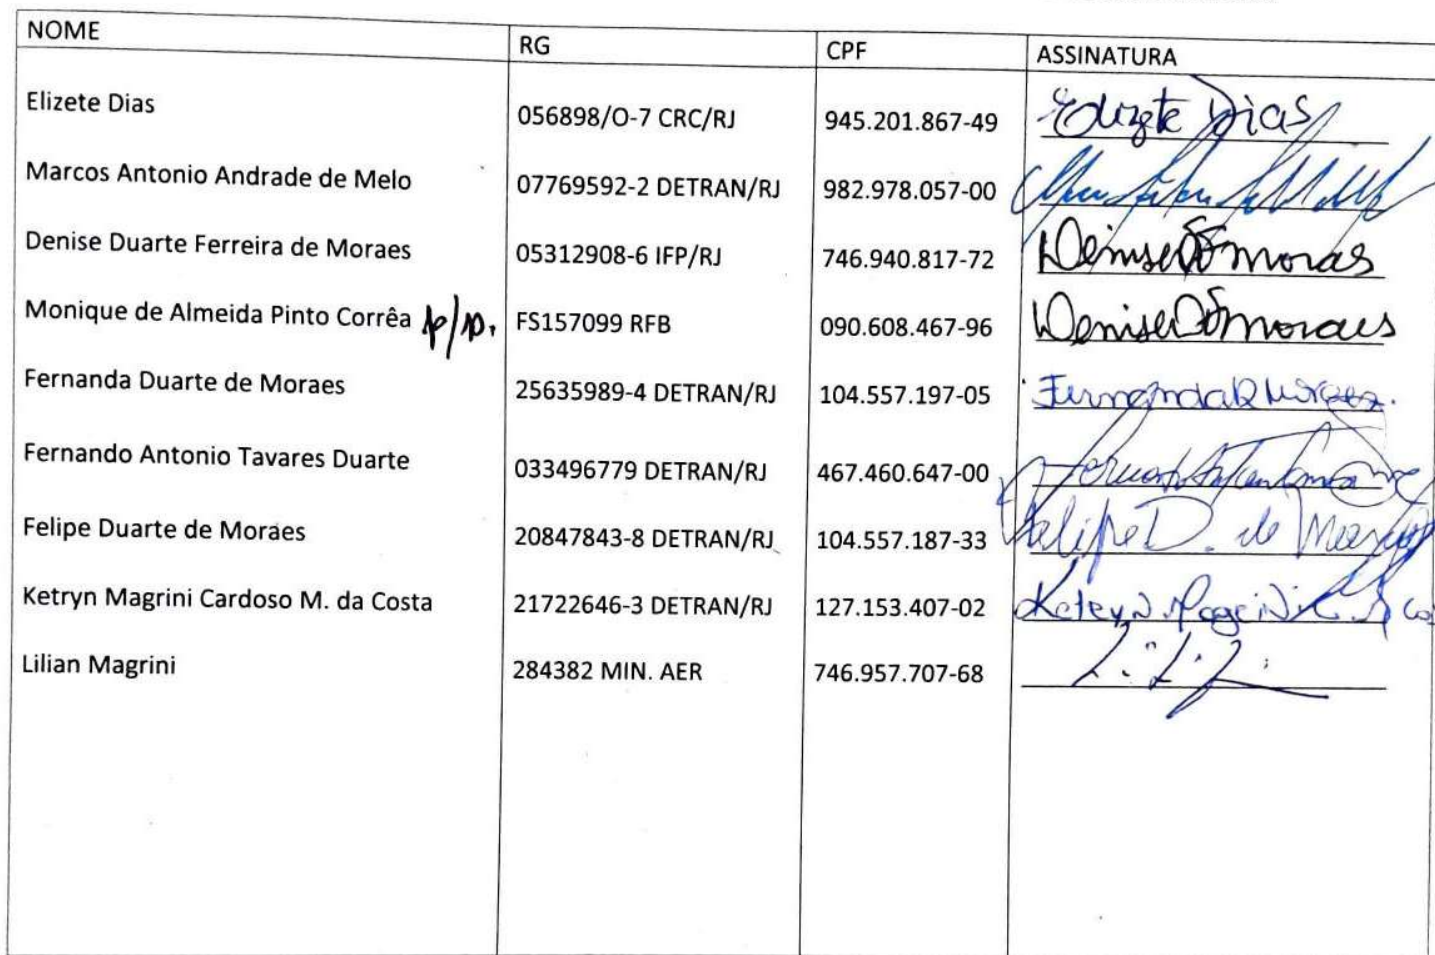 NOME RG CPF ASSINATURA
Elizete Dias 056898/O-7 CRC/RJ 945.201.867-49 Elizete Dias
Marcos Antonio Andrade de Melo 07769592-2 DETRAN/RJ 982.978.057-00
Denise Duarte Ferreira de Moraes 05312908-6 IFP/RJ 746.940.817-72 Denise DF Moraes
Monique de Almeida Pinto Corrêa p/p. FS157099 RFB 090.608.467-96 Denise DF Moraes
Fernanda Duarte de Moraes 25635989-4 DETRAN/RJ 104.557.197-05 Fernanda D Moraes.
Fernando Antonio Tavares Duarte 033496779 DETRAN/RJ 467.460.647-00
Felipe Duarte de Moraes 20847843-8 DETRAN/RJ 104.557.187-33 Felipe D. de Moraes
Ketryn Magrini Cardoso M. da Costa 21722646-3 DETRAN/RJ 127.153.407-02 Ketryn Magrini C.
Lilian Magrini 284382 MIN. AER 746.957.707-68